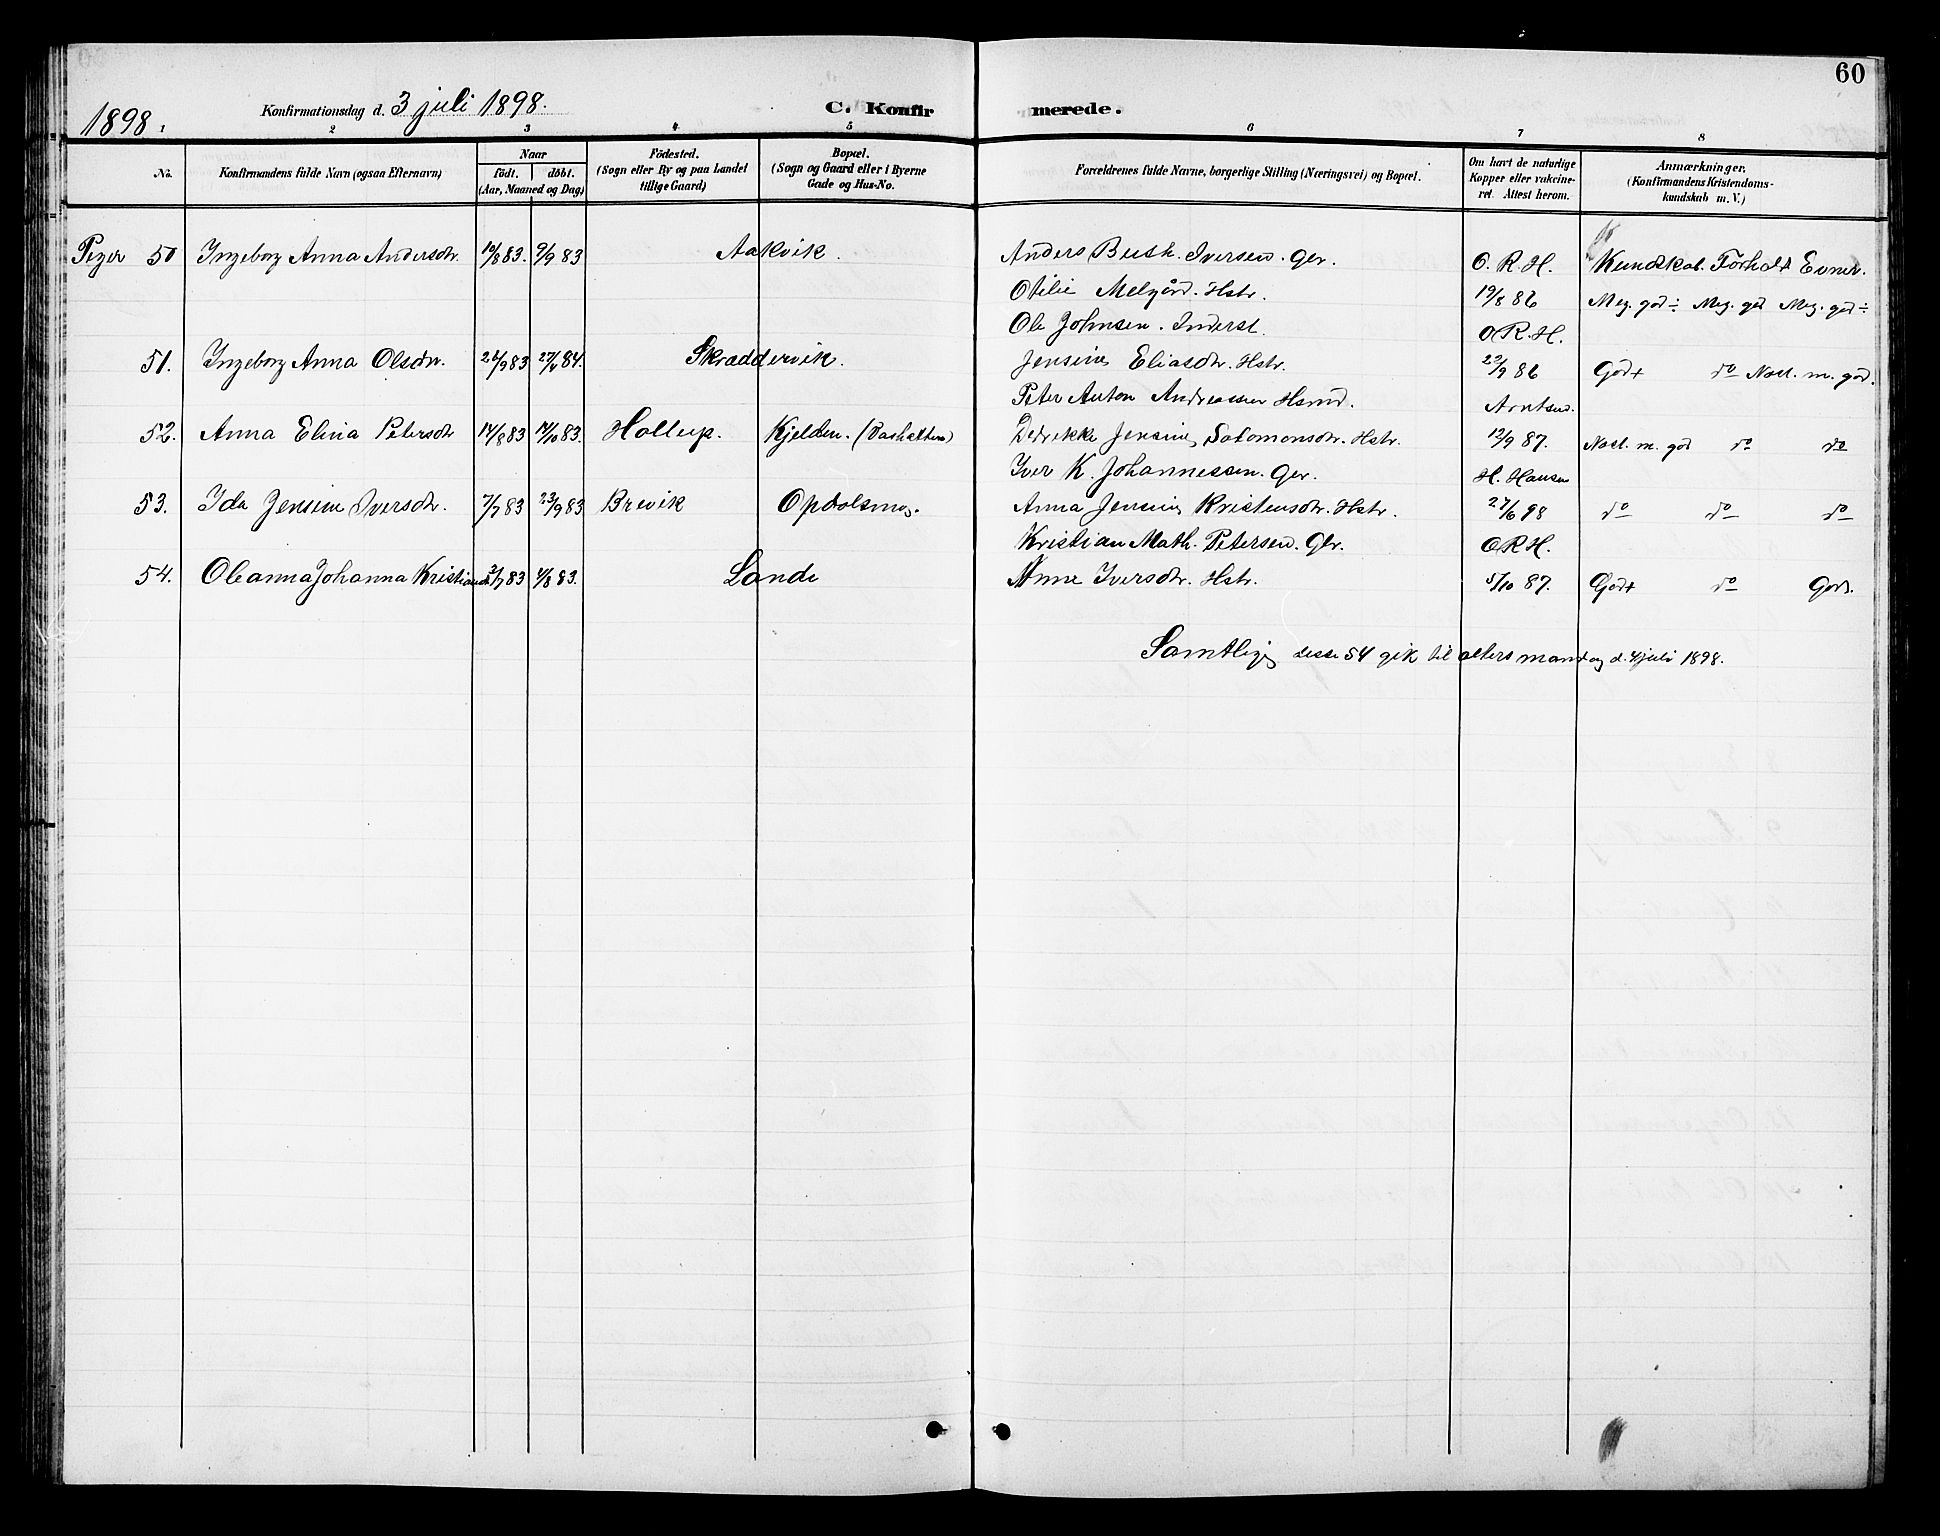 60
1898. Konfirmationsdag d. 3 juli 1898. C. Konfir merede.
1 2 3 4 5 6 7 8
No. Konfirmandens fulde Navn (ogsaa Efternavn) Naar Födt. döbt. (Aar, Maaned og Dag) Födested. (Sogn eller By og paa Landet tillige Gaard) Bopæl. (Sogn og Gaard eller i Byerne Gade og Hus-No.) Forældrenes fulde Navne, borgerlige Stilling (Næringsvei) og Bopæl. Om havt de naturlige Kopper eller vakcineret. Attest herom. Anmærkninger. (Konfirmandens Kristendomskundskab m. V.)
Piger 50 Ingeborg Anna Andersdtr. 10/8 83. 9/9 83 Aakvik. Anders Bush. Iversen. Gbr. O. R. H. Kundskab. Forhold Evner.
Otilie Melgård. Hstr. 19/8 86 Meg. god ÷ Meg. god Meg. god ÷
Ole Johnsen. Inderst. O R. H.
51. Ingeborg Anna Olsdtr. 26/9 83 27/4 84. Skræddervik. Jensine Eliasdtr. Hstr. 23/9 86 God+ do Noll. m. god.
Peter Anton Andreassen Hsmd. Arntsen.
52. Anna Elina Petersdtr 14/8 83 14/10 83. Hollup. Kjelden. Dedrikke Jensine Salomonsdtr. Hstr. 12/9 87. Noll. m. god do do
Iver K. Johannessen. Gbr. H. Hansen
53. Ida Jensine Iversdtr. 7/7 83 23/9 83 Brevik Opdølsmo. Anna Jensine Kristensdtr. Hstr. 27/6 98 do do do
Kristian Math. Petersen. Gbr. O R H.
54. Oleanna Johanna Kristiansd. 3/7 83 4/8 83. Lande Anne Iversdtr. Hstr. 5/10 87. God+ do God.
Samtlige disse 54 gik til alters mandag d. 4 juli 1898.